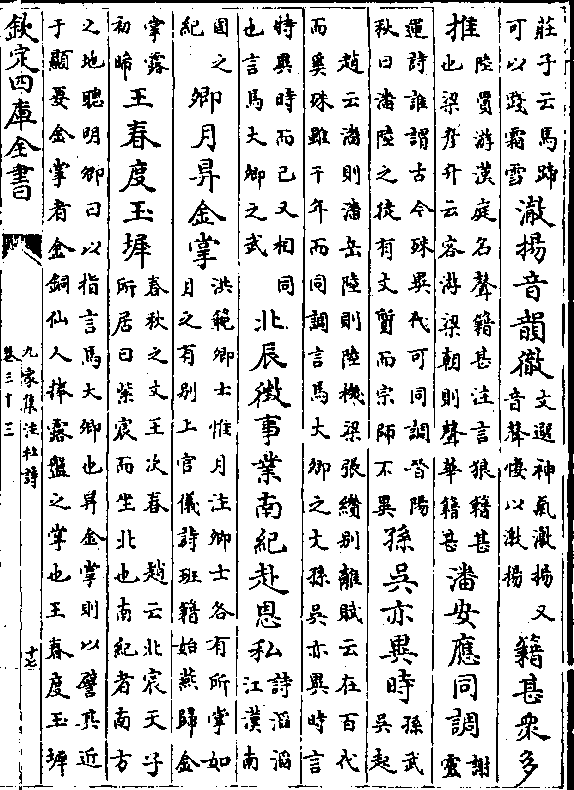 莊子云馬蹄
可以踐霜雪
激揚音韻徹
文選神氣激揚又
音聲悽以激揚
籍甚衆多
推
陸賈游漢庭名聲籍甚注言狼籍甚
也梁彥升云客游梁朝則聲華籍甚
潘安應同調
謝
靈
運詩誰謂古今殊異代可同調晉陽
秋曰潘陸之徒有文質而宗師不異
孫吳亦異時
孫武
吳起
趙云潘則潘岳陸則陸機梁張纘别離賦云在百代
而奚殊雖千年而同調言馬大卿之文孫吳亦異時言
時異時而已又相同
也言馬大卿之武
北辰徵事業南紀赴恩私
詩滔滔
江漢南
國之
紀
卿月昇金掌
洪範卿士惟月注卿士各有所掌如
月之有别上官儀詩班籍始燕歸金
掌露
初晞
王春度玉墀
春秋之文王次春 趙云北宸天子
所居曰紫宸而坐北也南紀者南方
之地聰明卿曰以指言馬大卿也昇金掌則以譬其近
于顯晏金掌者金銅仙人捧露盤之掌也王春度玉墀
欽定四庫全書
九家集注杜詩
卷三十三
十七